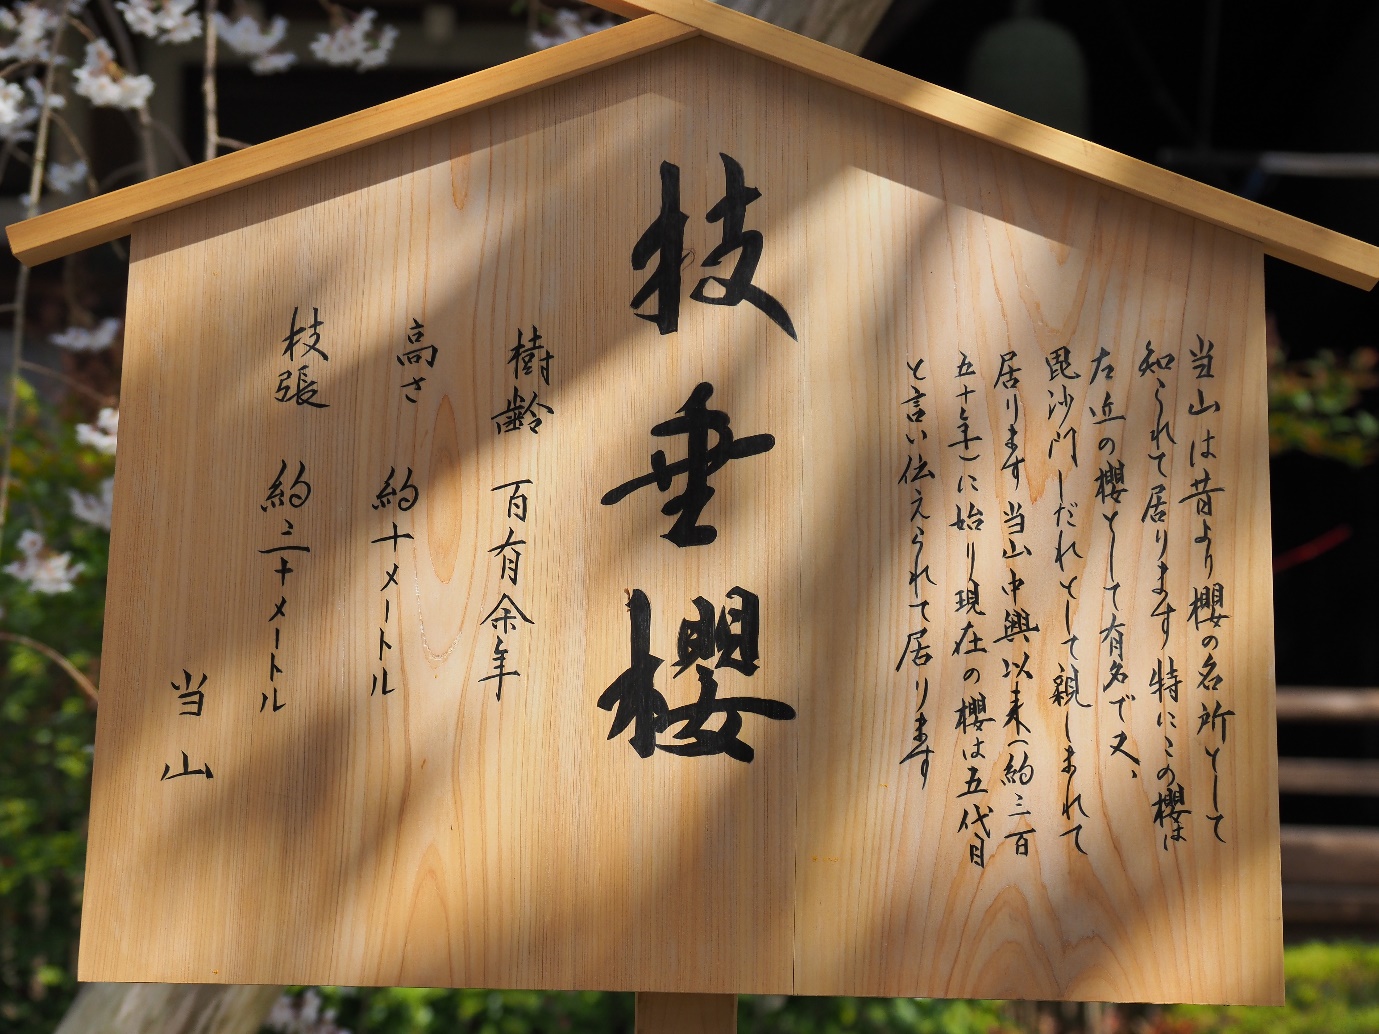 当山は昔より櫻の名所として
知られて居ります特にこの櫻は
左近の櫻として有名で又、
毘沙門しだれとして親しまれて
居ります当山中興以来(約三百
五十年)に始り現在の櫻は五代目
と言い伝えられて居ります
枝垂櫻
樹齢 百有余年
高さ 約十メートル
枝張 約三十メートル
当山